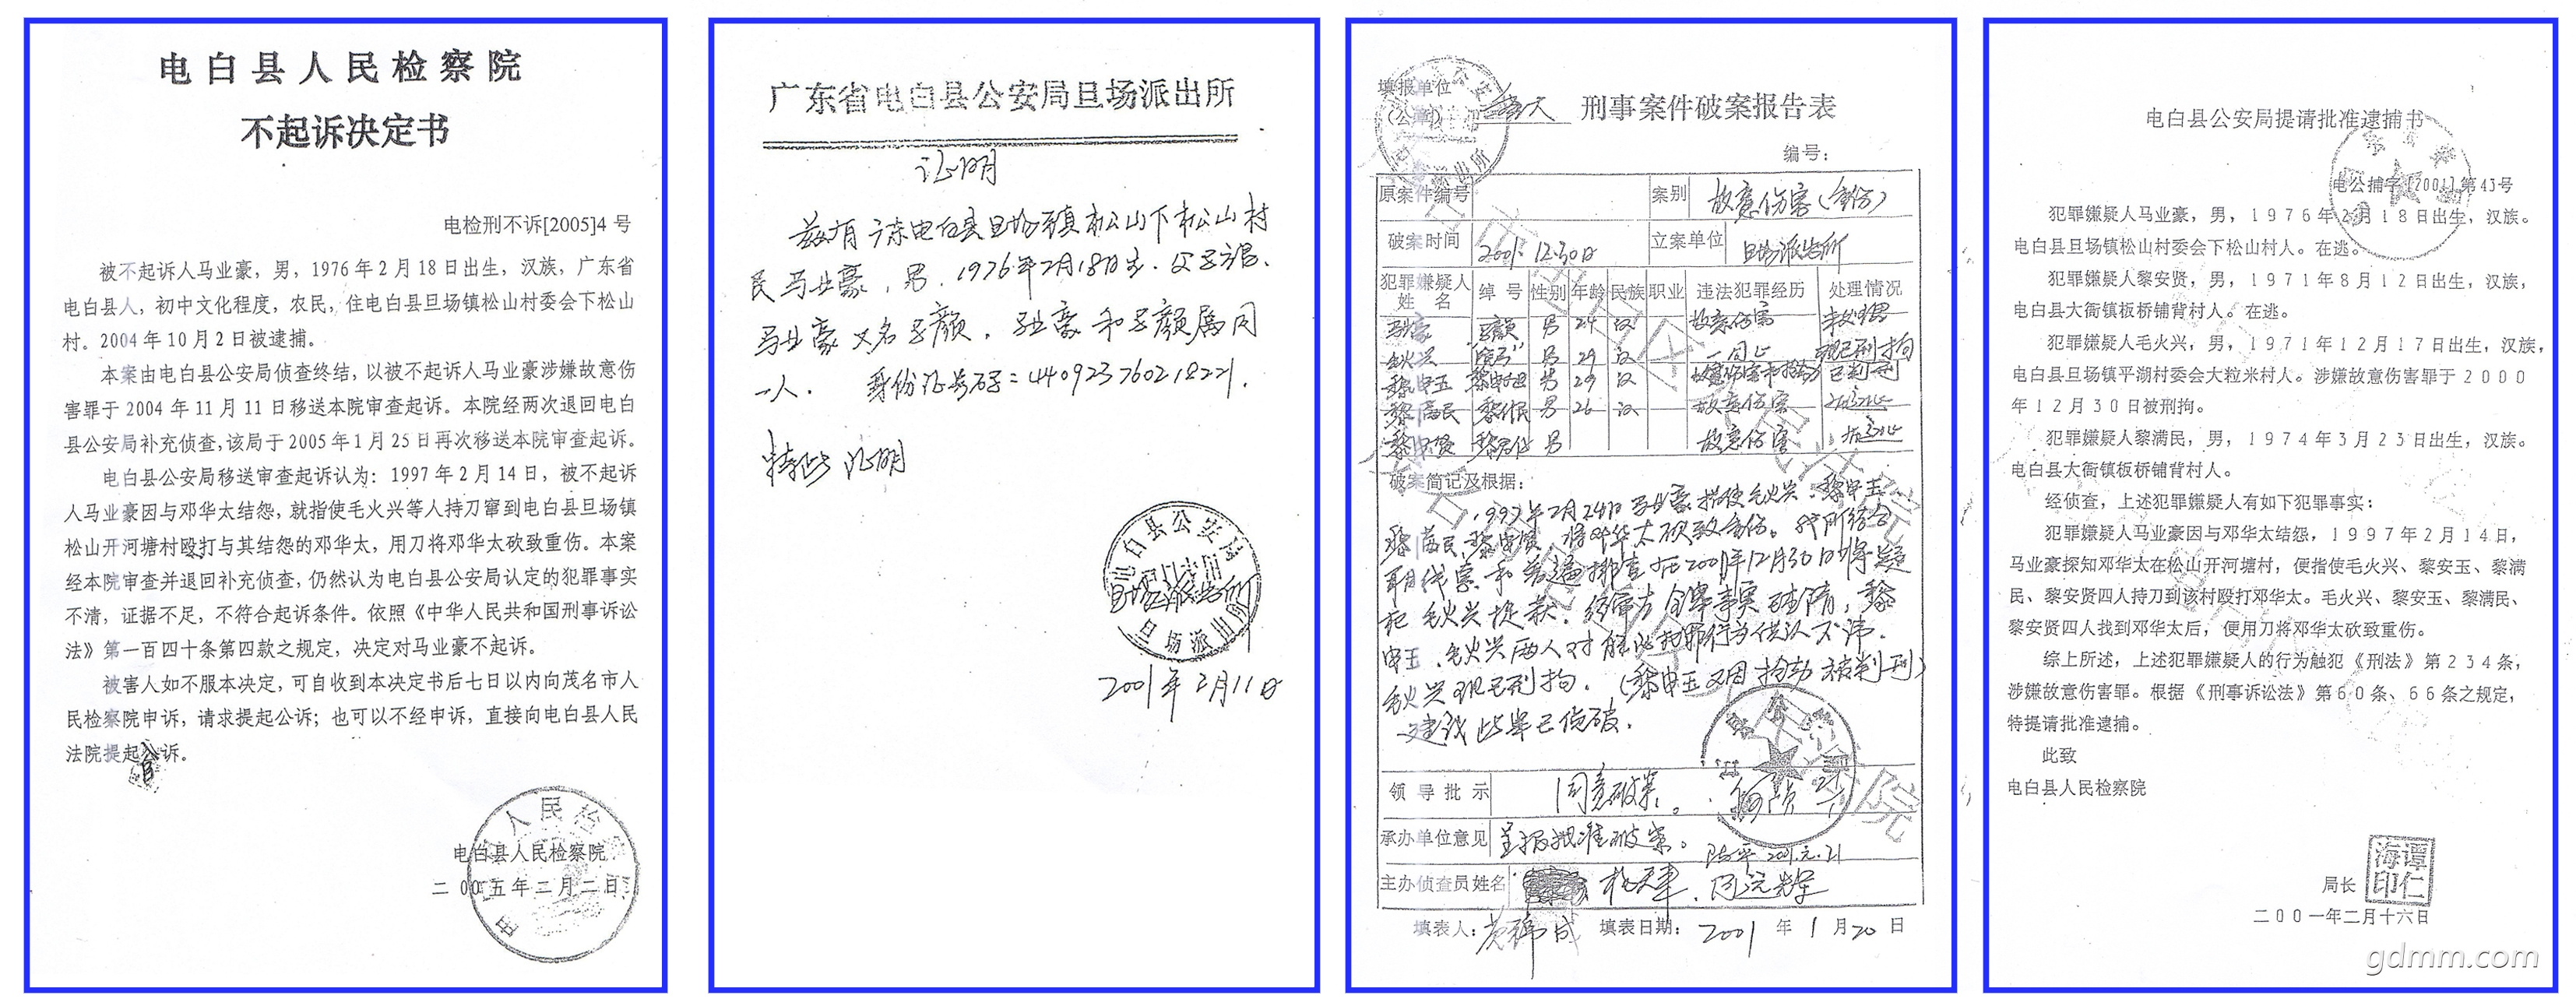 电白县人民检察院
不起诉决定书
电检刑不诉[2005]4 号
被不起诉人马业豪，男，1976年2月18日出生，汉族，广东省
电白县人，初中文化程度，农民，住电白县旦场镇松山村委会下松山
村。2004年10月2日被逮捕。
本案由电白县公安局侦查终结，以被不起诉人马业豪涉嫌故意伤
害罪于2004年11月11日移送本院审查起诉。本院经两次退回电白
县公安局补充侦查，该局于2005年1月25日再次移送本院审查起诉。
电白县公安局移送审查起诉认为：1997年2月14日，被不起诉
人马业豪因与邓华太结怨，就指使毛火兴等人持刀窜到电白县旦场镇
松山开河塘村殴打与其结怨的邓华太，用刀将邓华太砍致重伤。本案
经本院审查并退回补充侦查，仍然认为电白县公安局认定的犯罪事实
不清，证据不足，不符合起诉条件。依照《中华人民共和国刑事诉讼
法》第一百四十条第四款之规定，决定对马业豪不起诉。
被害人如不服本决定，可自收到本决定书后七日以内向茂名市人
民检察院申诉，请求提起公诉；也可以不经申诉，直接向电白县人民
法院提起诉。
电白县人民检察院
二00五年二月二日
广东省电白县公安局旦场派出所
证明
兹有广东电白县旦场镇松山下松山村
民马业豪，男，1976年2月18日生，
马业豪又名马颜，马业豪和马颜属同
一人. 身份证号码：440923760218221.
特此证明
电白县公安局
旦场派出所
2001年2月11日
填报单位
(公章)
刑事案件破案报告表
编号：
原案件编号 案别 故意伤害(重伤)
破案时间 2001.12.30日 立案单位 旦场派出所
犯罪嫌疑人姓名 绰号 性别 年龄 民族 职业 违法犯罪经历 处理情况
马业豪 马颜 男 24 汉 故意伤害
毛火兴 男 29 汉 一同上 现已刑拘
男 29 汉 已判刑
黎满民 男 26 汉 故意伤害
男 故意伤害
破案简记及根据：
1997年2月24日马业豪指使毛火兴、黎安玉
黎满民、黎安贤将邓华太砍致重伤。我所结合
在2001年12月30日将疑
犯毛火兴
毛火兴两人对犯罪行为供认不讳.
毛火兴现已刑拘.
建议此案已侦破.
领导批示 同意破案。
承办单位意见 呈报批准破案。
主办侦查员姓名
填表人： 填表日期：2001年1月20日
电白县公安局提请批准逮捕书
电公捕字[2001]第43号
犯罪嫌疑人马业豪，男，1976年2月18日出生，汉族。
电白县旦场镇松山村委会下松山村人。在逃。
犯罪嫌疑人黎安贤，男，1971年8月12日出生，汉族，
电白县大衙镇板桥铺背村人。在逃。
犯罪嫌疑人毛火兴，男，1971年12月17日出生，汉族，
电白县旦场镇平湖村委会大粒米村人。涉嫌故意伤害罪于2000
年12月30日被刑拘。
犯罪嫌疑人黎满民，男，1974年3月23日出生，汉族。
电白县大衙镇板桥铺背村人。
经侦查，上述犯罪嫌疑人有如下犯罪事实：
犯罪嫌疑人马业豪因与邓华太结怨，1997年2月14日，
马业豪探知邓华太在松山开河塘村，便指使毛火兴、黎安玉、黎满
民、黎安贤四人持刀到该村殴打邓华太。毛火兴、黎安玉、黎满民、
黎安贤四人找到邓华太后，便用刀将邓华太砍致重伤。
综上所述，上述犯罪嫌疑人的行为触犯《刑法》第234条，
涉嫌故意伤害罪。根据《刑事诉讼法》第60条、66条之规定，
特提请批准逮捕。
此致
电白县人民检察院
局长
海谭
印仁
二00一年二月十六日
gdmm.com